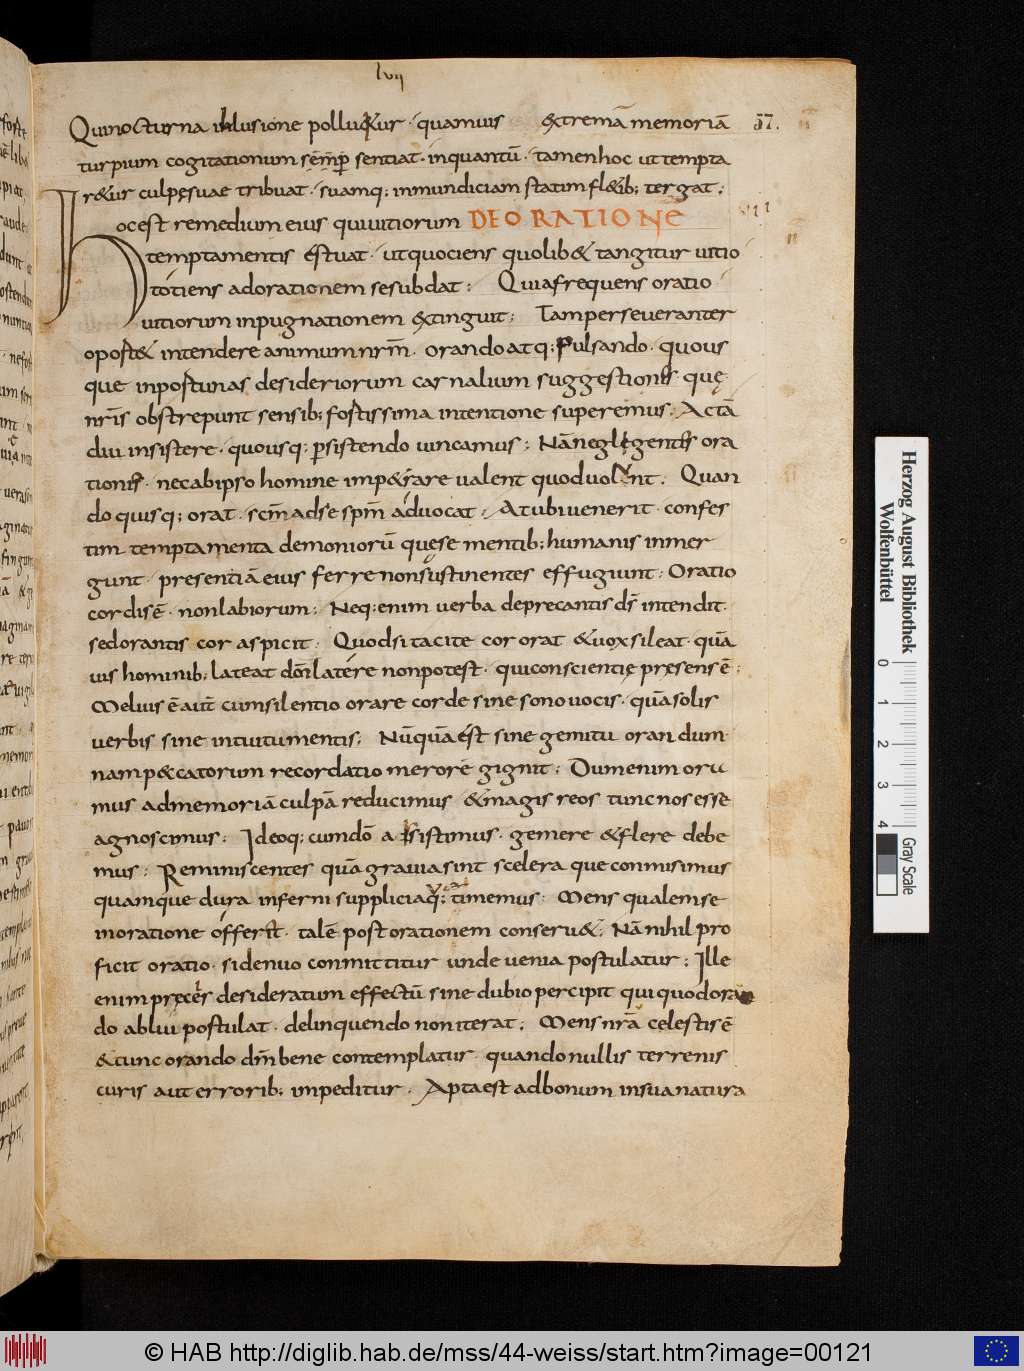 lvii
Qui nocturna inlusione polluitur · quamuis &tremā memoriā 57.
turpium cogitationum sēmp sentiat · inquantū · tamen hoc ut tempta
r&ur culpęsuae tribuat · suamq; inmundiciam statim fl&ib; tergat ;
Hocest remedium eius quiuitiorum DE ORATIONE VII
temptamentis ęstuat · utquociens quolib& tangitur uitio
totiens adorationem sesubdat ; Quiafrequens oratio
uitiorum inpugnationem &tinguit ; Tamperseueranter
oport& intendere animum nrm̄ · orandoatq; Pulsando · quous
que inportunas desideriorum carnalium suggestionis quę
nrīs obstrepunt sensib; fortissima intentione superemus ; Actā
diu insistere · quousq; psistendo uincamus ; Nāneglegentes ora
tionis · necabipso homine imp&rare ualent quoduolunt . Quan
do quisq; orat · scm̄ adse spm̄ aduocat ; Atubiuenerit · confes
tim temptamenta demoniorū quęse mentib; humanis inmer
gunt · presentiā eius ferre nonsustinentes effugiunt ; Oratio
cordisē · nonlabiorum ; Neq; enim uerba deprecantis ds̄ intendit ·
sedorantis cor aspicit · Quodsi tacite cor orat &uox sileat · quā
uis hominib; lateat dōm latere nonpotest · quiconscientię pręsensē ;
Melius ē aut̄ cumsilentio orare corde sine sono uocis · quāsolis
uerbis sine intuitu mentis ; Nūquāēst sine gemitu orandum
nam p&catorum recordatio merorē gignit ; Dumenim oru
mus admemoriā culpā reducimus &magis reos tunc nos esse
agnoscimus ; Ideoq; cumdō assistimus · gemere &flere debe
mus ; Reminiscentes quā grauia sint scelera que conmisimus
quamque dura inferni suppliciaq; timemus ; Mens qualemse
inoratione offert · talē post orationem conseru& ; Nā nihil pro
ficit oratio · sidenuo conmittitur unde uenia postulatur ; Ille
enim pręcēs desideratum effectū sine dubio percipit qui quodoran
do ablui postulat · delinquendo non iterat ; Mens nrā celestis ē
&tunc orando dm̄ bene contemplatur · quando nullis terrenis
curis aut errorib; impeditur · Aptaest adbonum insuanatura
Herzog August Bibliothek
Wolfenbüttel
0 1 2 3 4
Gray Scale
© HAB http://diglib.hab.de/mss/44-weiss/start.htm?image=00121